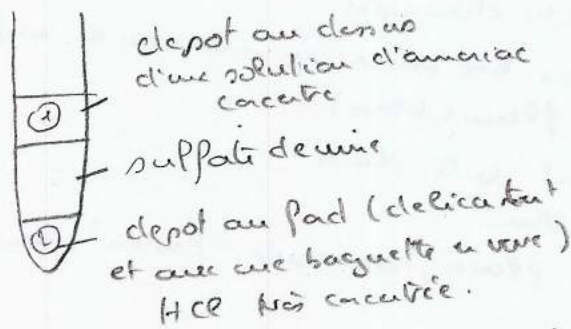 depot au dessus
d'une solution d'amoniac
concentre
①
sulfate de cuivre
②
depot au fond (delicatement
et avec une baguette en verre)
HCl très concentrée.